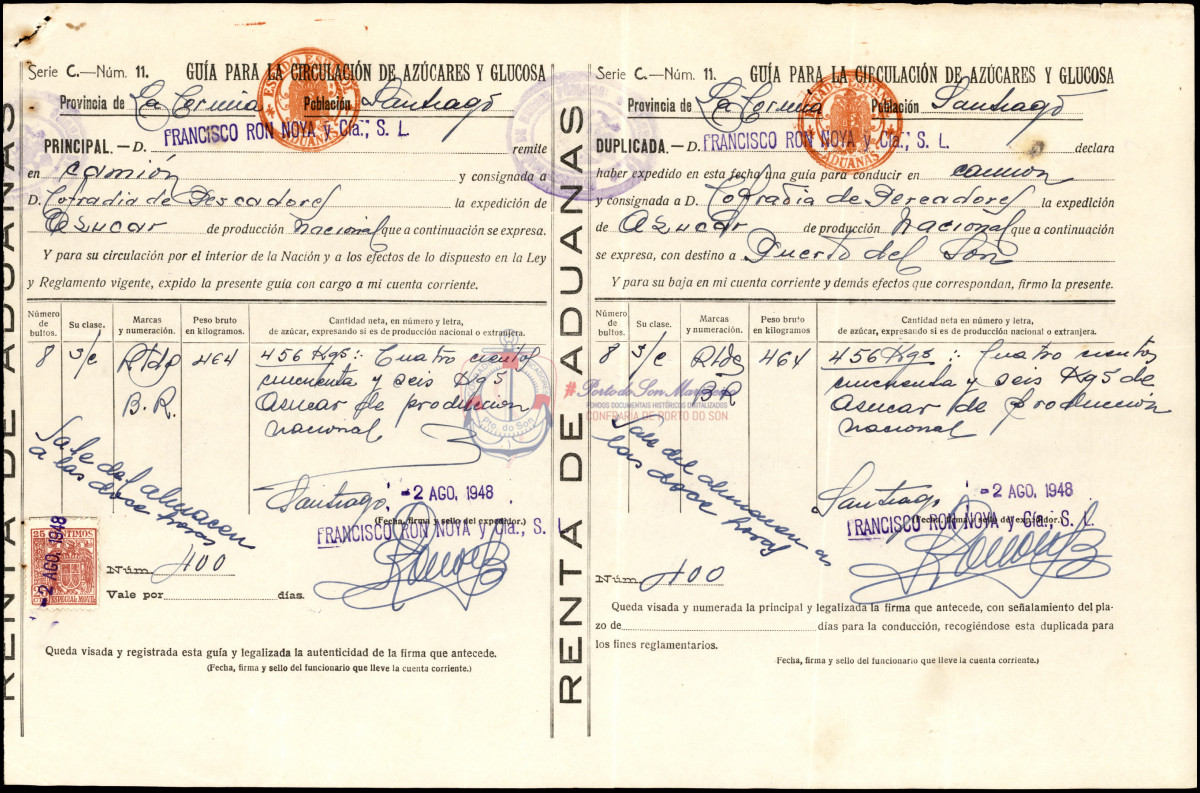 RENTA DE ADUANAS
Serie C.—Núm. 11. GUÍA PARA LA CIRCULACIÓN DE AZÚCARES Y GLUCOSA
ESTADO ESPAÑOL
ADUANAS
Provincia de La Coruña Población Santiago
FRANCISCO RON NOYA y Cía., S. L.
PRINCIPAL.—D. remite
en camión y consignada a
D. Cofradia de Pescadores la expedición de
Azucar de producción Nacional que a continuación se expresa.
Y para su circulación por el interior de la Nación y a los efectos de lo dispuesto en la Ley
y Reglamento vigente, expido la presente guía con cargo a mi cuenta corriente.
Número de bultos. Su clase. Marcas y numeración. Peso bruto en kilogramos. Cantidad neta, en número y letra, de azúcar, expresando si es de producción nacional o extranjera.
8 s/c 464 456 Kgs: Cuatro cientos
cincuenta y seis Kgs
B.R. Asucar de producion
nacional
Sale del almacen
a las doce horas
Santiago, -2 AGO. 1948
(Fecha, firma y sello del expedidor.)
FRANCISCO RON NOYA y Cía., S. L.
25 CENTIMOS
ESPECIAL MOVIL
-2 AGO. 1948
Núm. 400
Vale por días.
Queda visada y registrada esta guía y legalizada la autenticidad de la firma que antecede.
(Fecha, firma y sello del funcionario que lleve la cuenta corriente.)
RENTA DE ADUANAS
Serie C.—Núm. 11. GUÍA PARA LA CIRCULACIÓN DE AZÚCARES Y GLUCOSA
ESTADO ESPAÑOL
ADUANAS
Provincia de La Coruña Población Santiago
FRANCISCO RON NOYA y Cía., S. L.
DUPLICADA.—D. declara
haber expedido en esta fecha una guía para conducir en camion
y consignada a D. Cofradia de Percadores la expedición
de Azucar de producción Nacional que a continuación
se expresa, con destino a Puerto del Son
Y para su baja en mi cuenta corriente y demás efectos que correspondan, firmo la presente.
Número de bultos. Su clase. Marcas y numeración. Peso bruto en kilogramos. Cantidad neta, en número y letra, de azúcar, expresando si es de producción nacional o extranjera.
8 s/c 464 456 Kgs: Cuatro cientos
cincuenta y seis Kgs de
BR asucar de producción
nacional
Sale del almacen a
las doce horas
Santiago, -2 AGO. 1948
(Fecha, firma y sello del expedidor.)
FRANCISCO RON NOYA y Cía., S. L.
Núm. 400
Queda visada y numerada la principal y legalizada la firma que antecede, con señalamiento del pla-
zo de días para la conducción, recogiéndose esta duplicada para
los fines reglamentarios.
(Fecha, firma y sello del funcionario que lleve la cuenta corriente.)
Pto. do Son
FONDOS DOCUMENTAIS HISTÓRICOS DIGITALIZADOS
CONFRARÍA DE PORTO DO SON